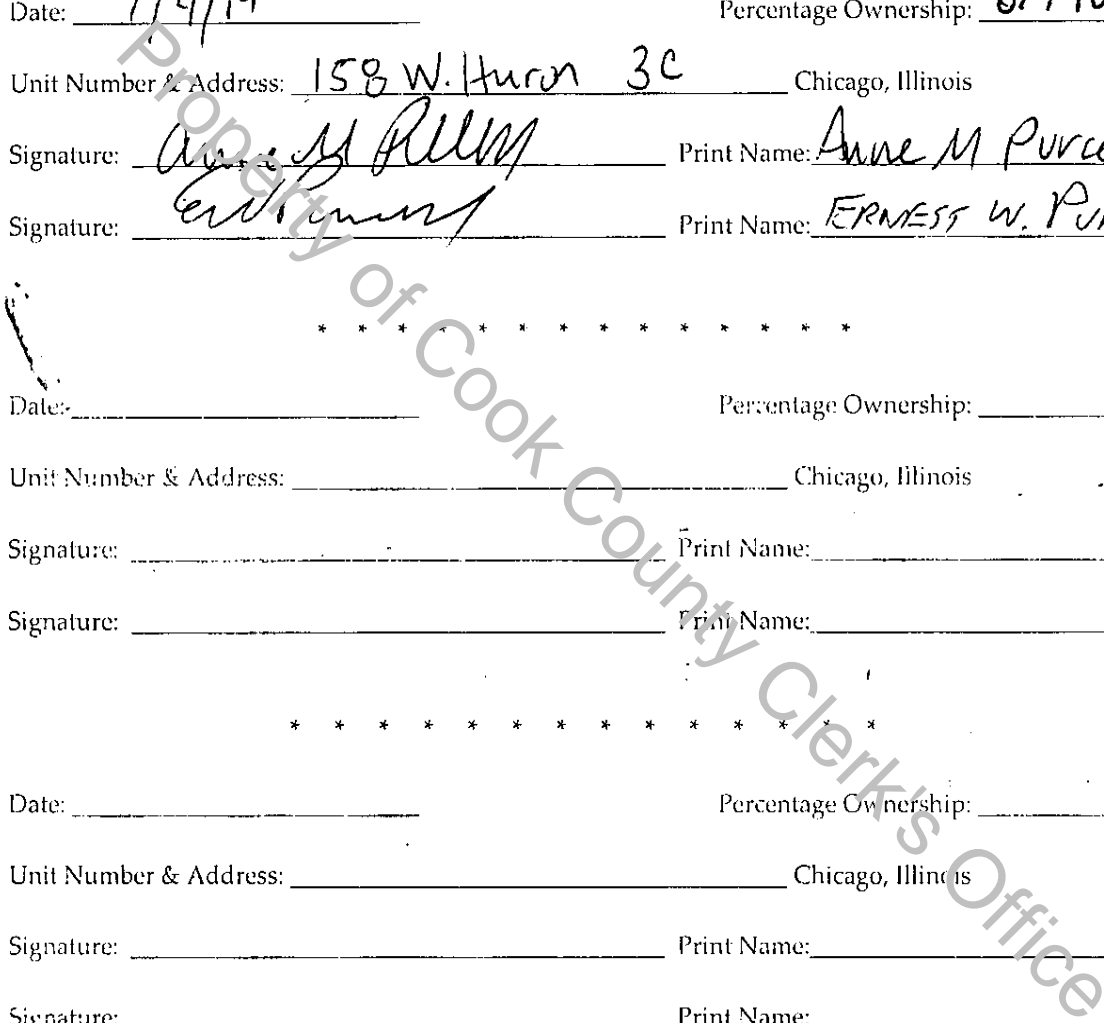 Date: Percentage Ownership:
Unit Number & Address: 158 W. Huron 3C Chicago, Illinois
Signature: Print Name: Anne M Purce
Signature: Print Name: ERNEST W. PUR
* * * * * * * * * * * * * *
Date: Percentage Ownership:
Unit Number & Address: Chicago, Illinois
Signature: Print Name:
Signature: Print Name:
* * * * * * * * * * * * * *
Date: Percentage Ownership:
Unit Number & Address: Chicago, Illinois
Signature: Print Name:
Signature: Print Name:
Property of Cook County Clerk's Office